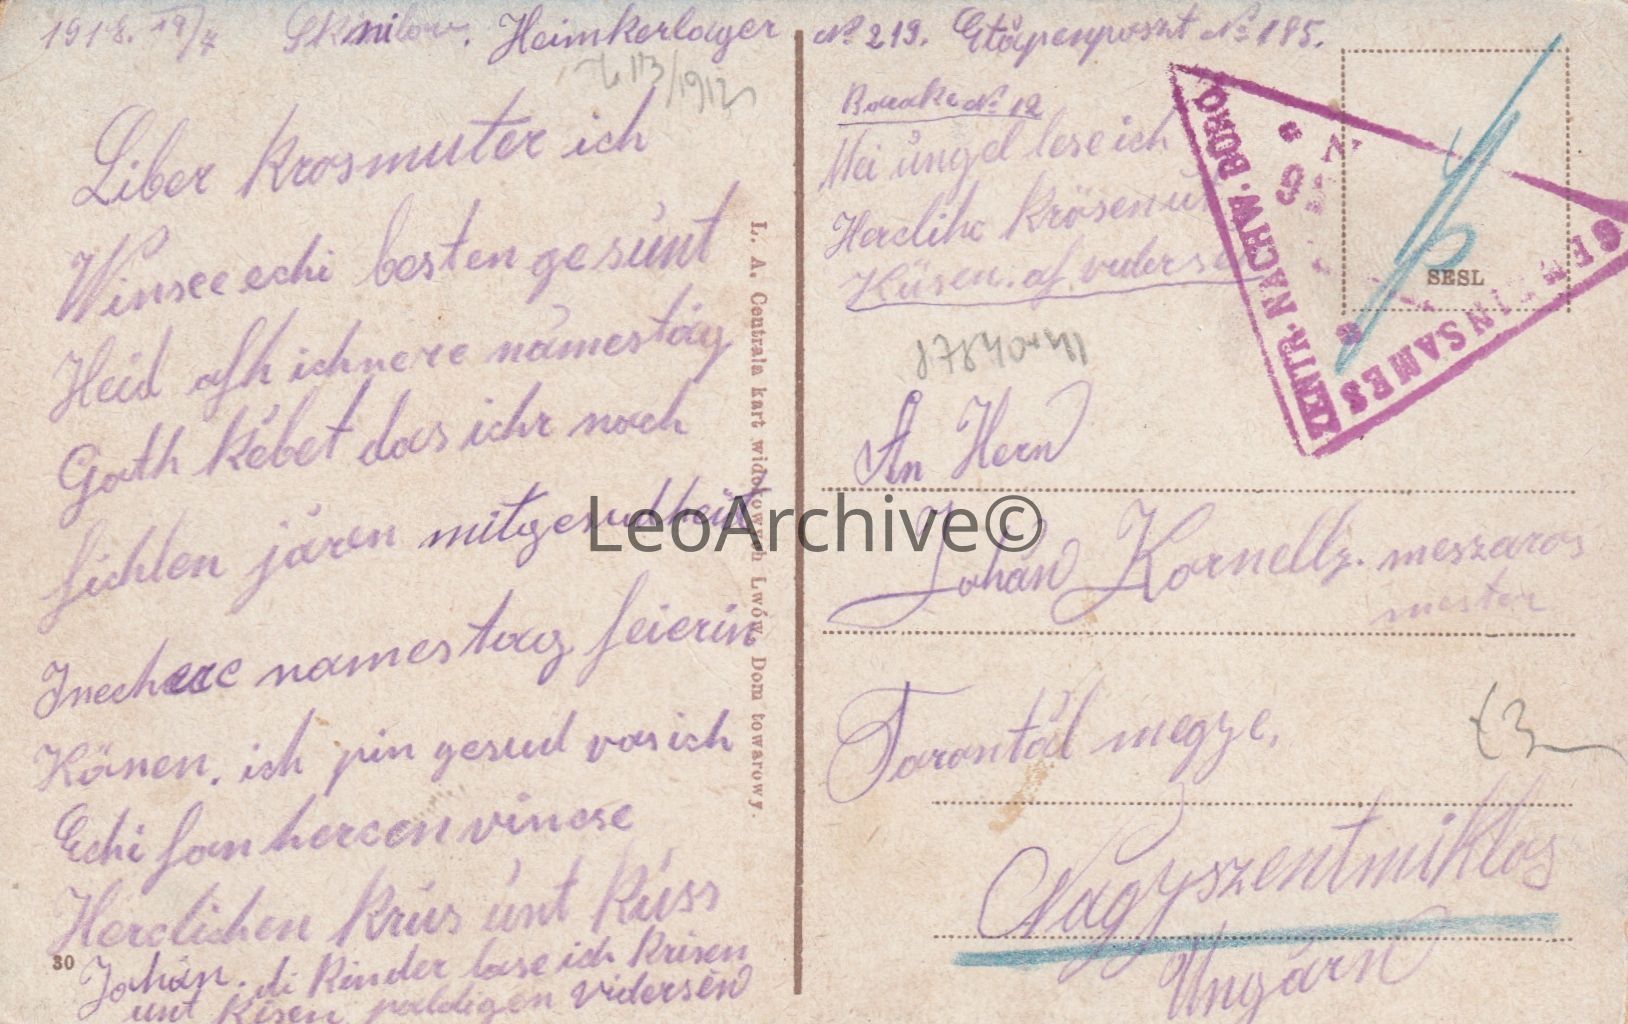 1918. 19/4 Sknilow. Heimkerlager No 219. Etápenposzt No 185.
Liber krosmuter ich
Winsee echi besten gesúnt
Heid afh ichnere námestág
Goth kébet das ichr noch
fichlen járen mitgesudheit
Inecherc namestag feierin
Kánen. ich pin gesud vas ich
Echi fan hercen vincse
Herclichen krús únt kúss
Johán. di kinder lase ich krisen
unt kisen paldigen vidersén
30
L. A. Centrala kart widokowych Lwów, Dom towarowy.
Barake No 12
Mei úngel lese ich
Herclihc krósen
Kúsen. af viderse
ZENTR. NACHW. BORO
GEMEINSAMES
SESL
An Hern
Johán Kornelly. meszaros
mester
Torontál megye.
Nagyszentmiklos
Ungárn
LeoArchive©